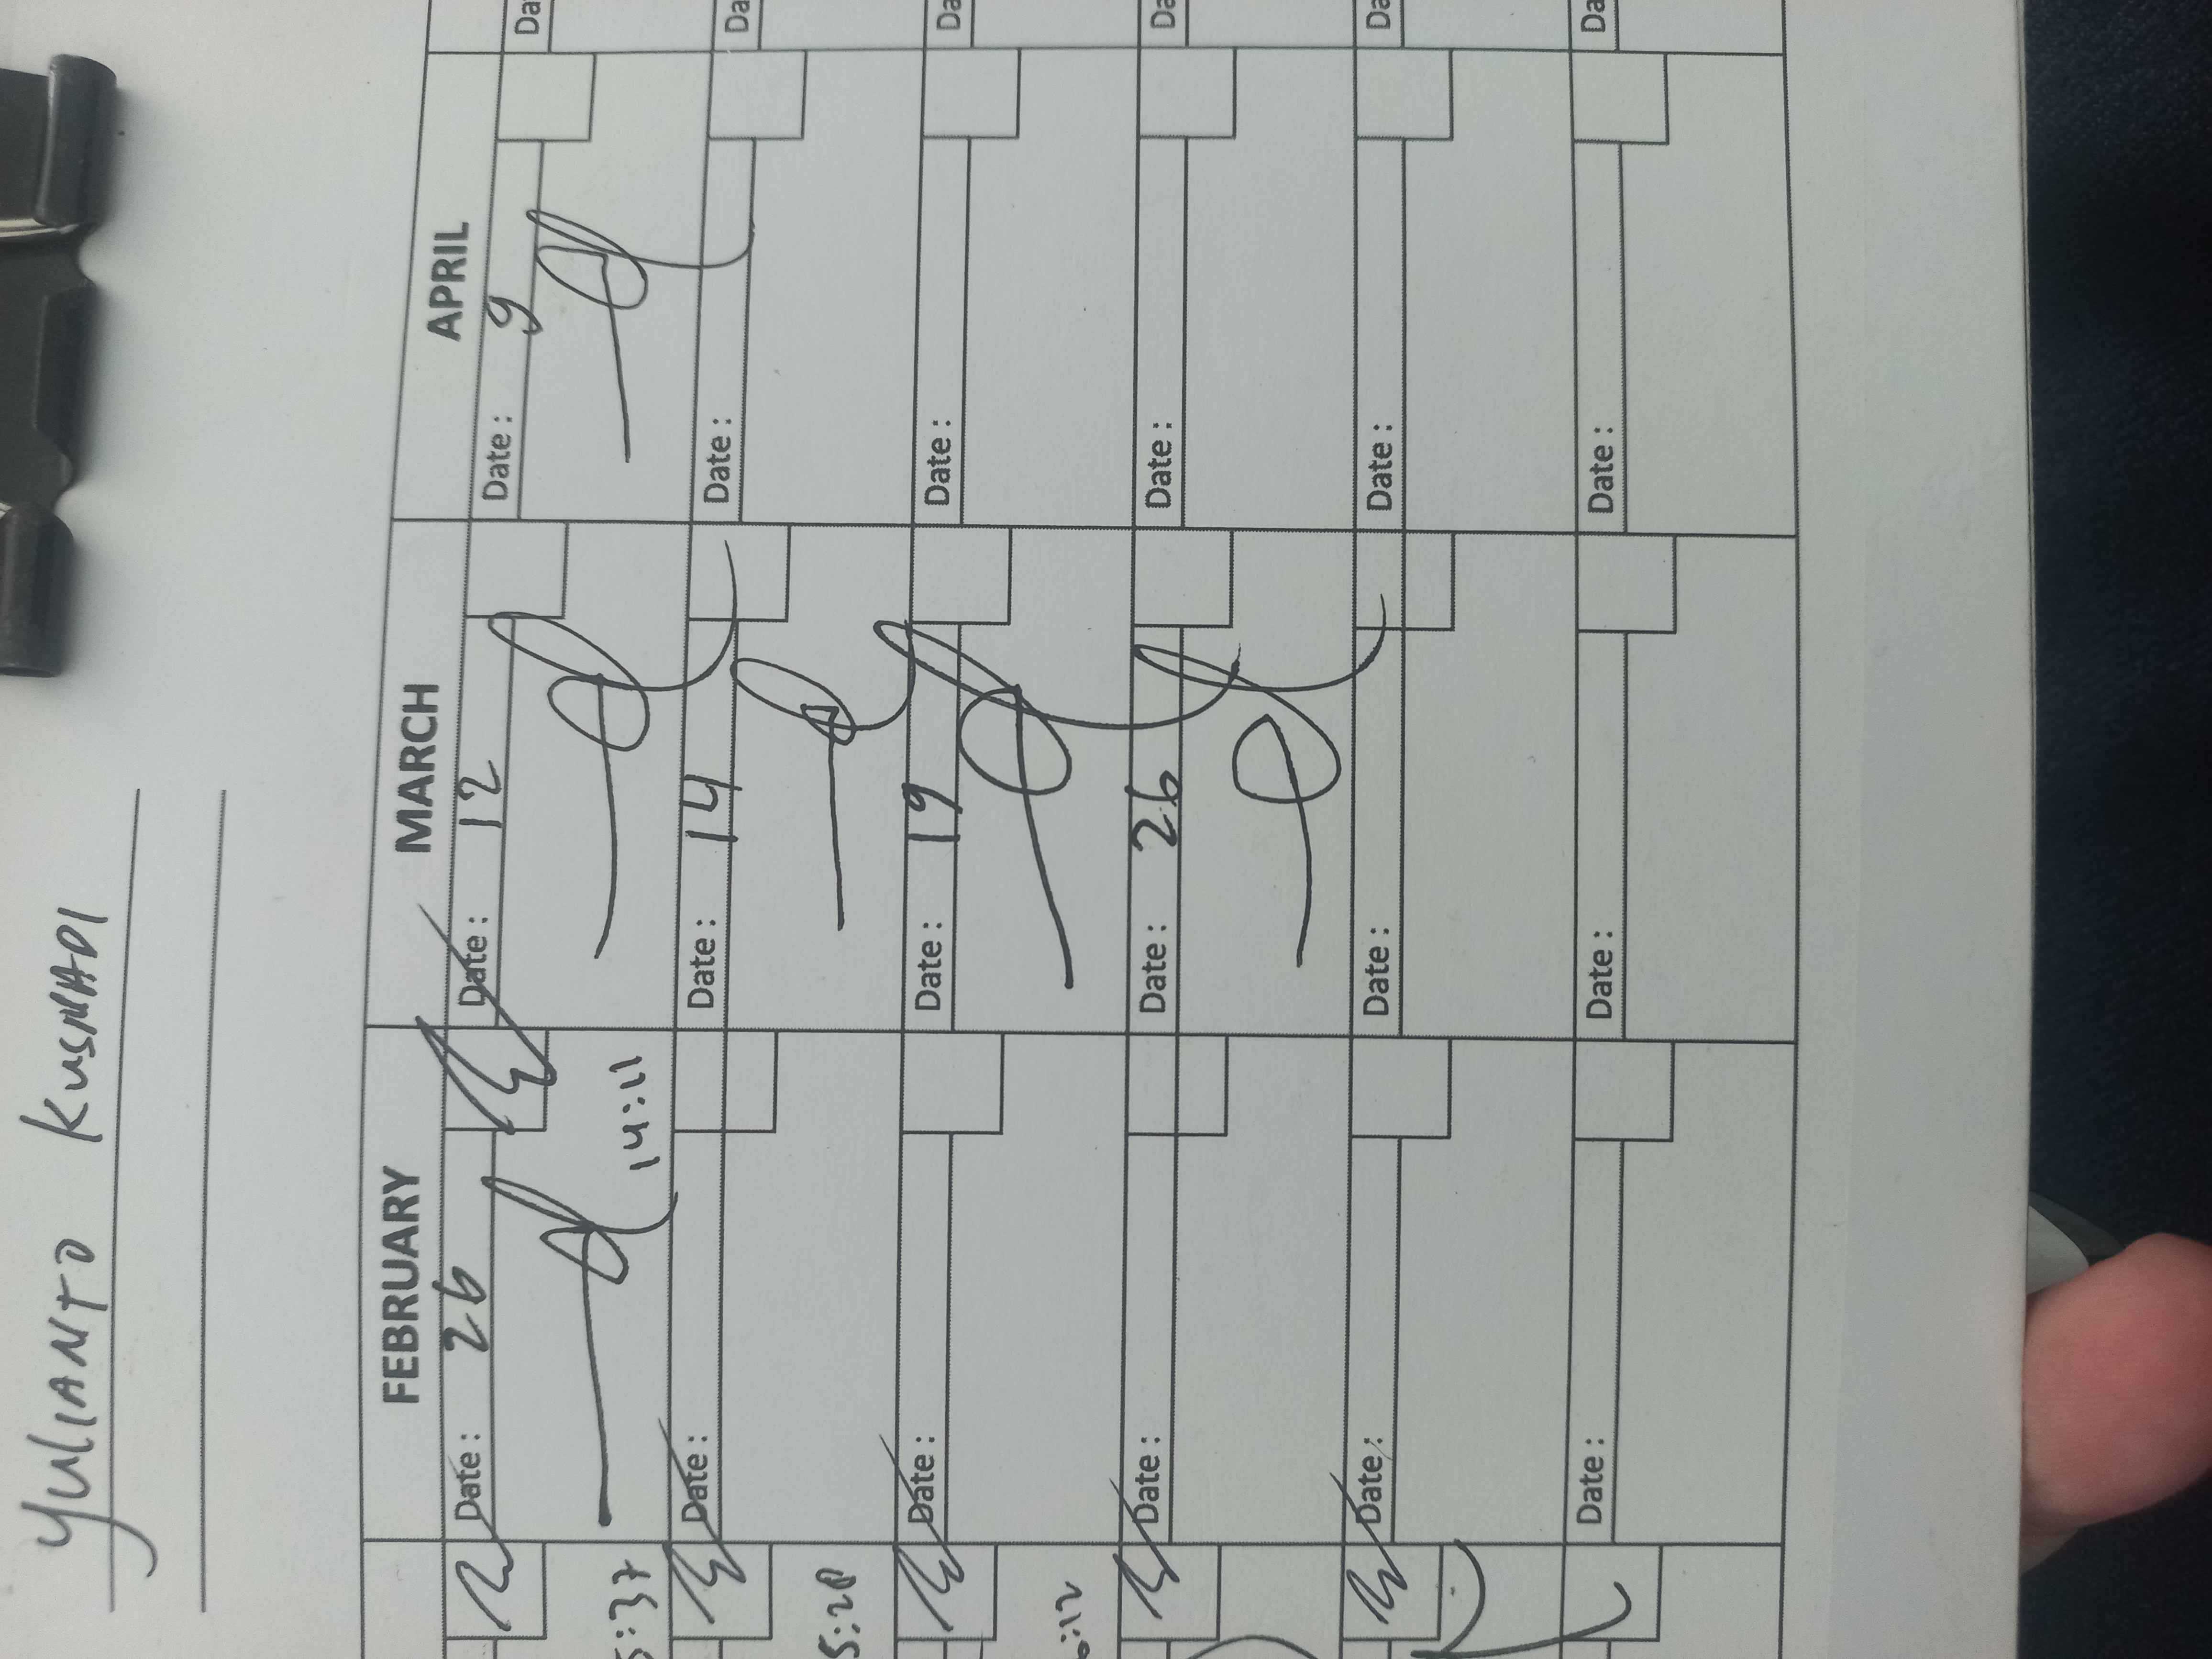 YULIANTO KUSMADI
FEBRUARY MARCH APRIL
Date : 26 Date : 12 Date : 9 Da
14:11
5:37
Date : Date : 14 Date : Da
5:28
Date : Date : 19 Date : Da
:12
Date : Date : 26 Date : Da
Date : Date : Date : Da
Date : Date : Date : Da